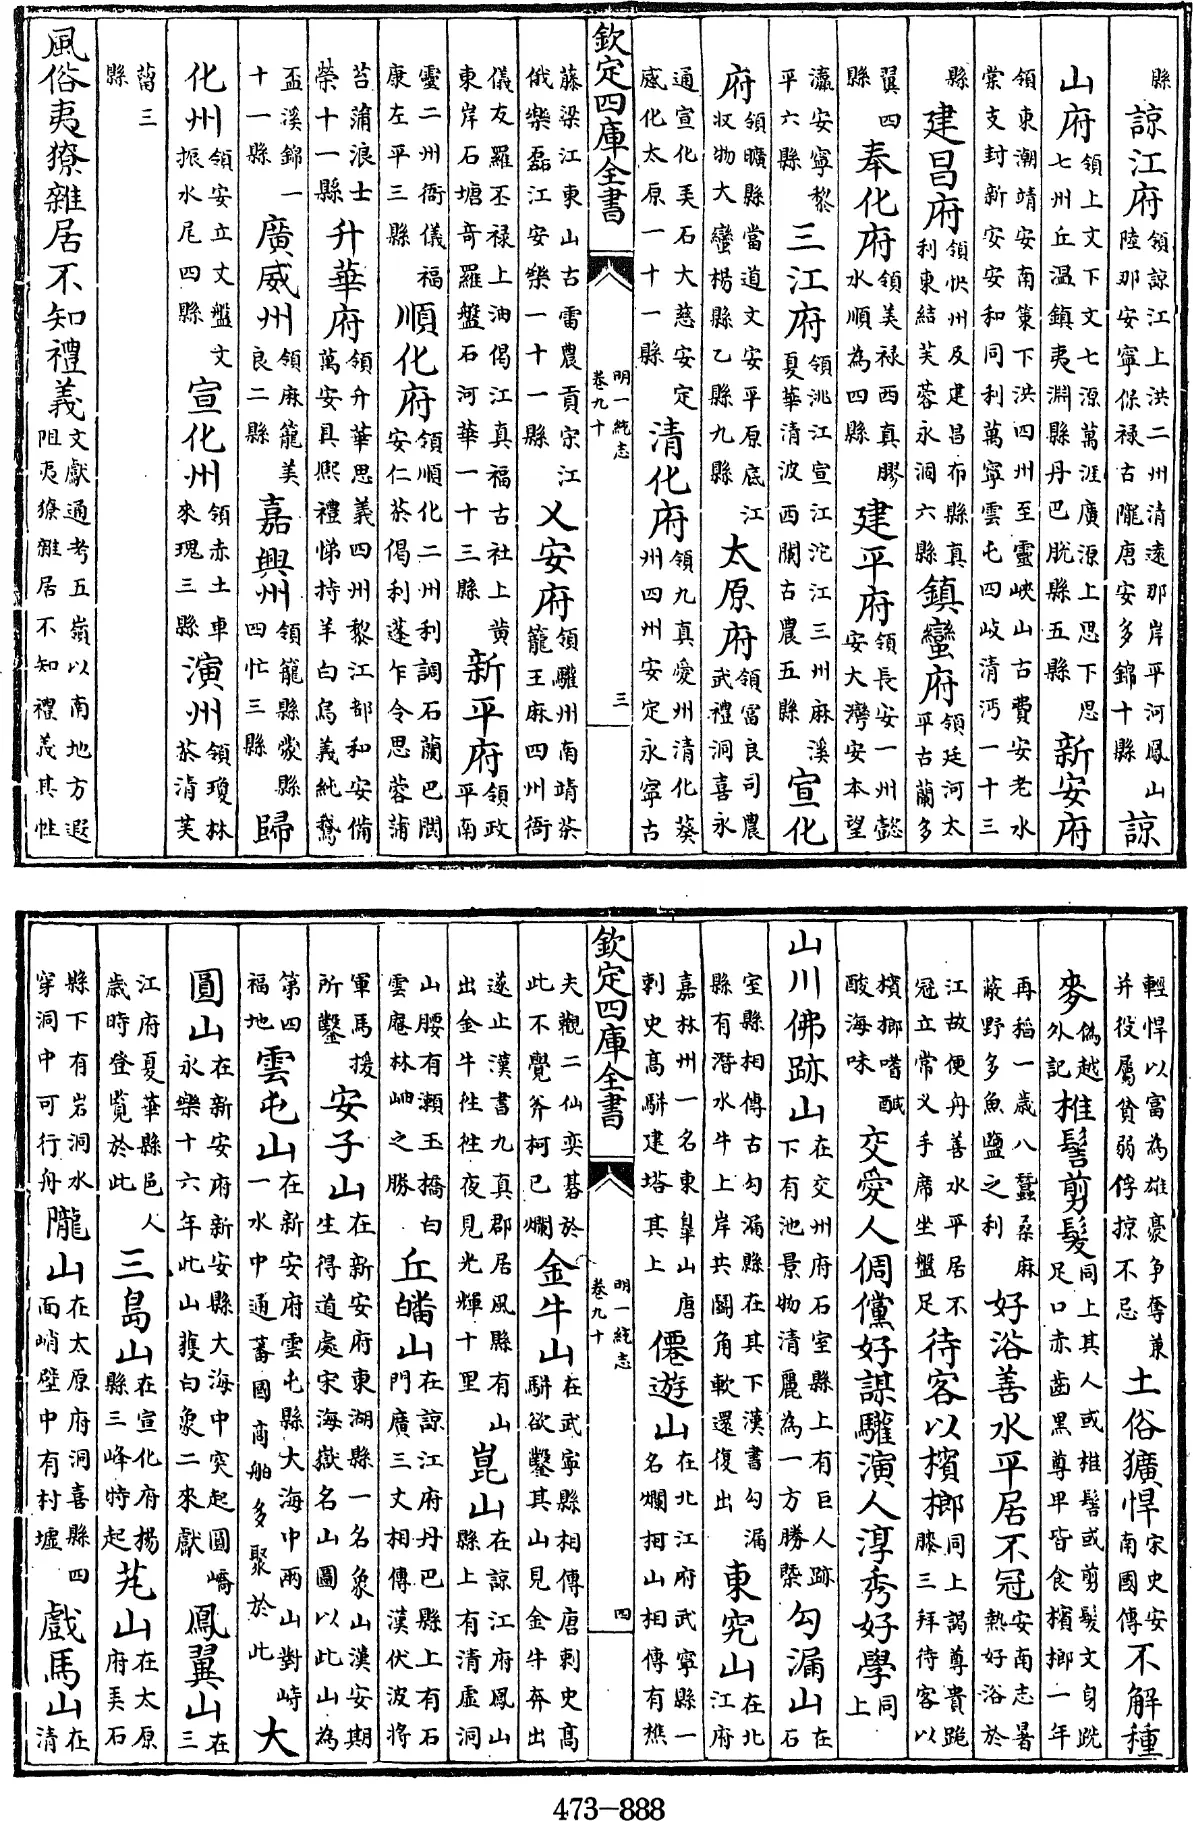 縣諒江府領諒江上洪二州清遠那岸平河鳳山陸那安寧保禄古隴唐安多錦十縣諒
山府領上文下文七源萬涯廣源上思下思七州丘温鎮夷淵縣丹巴脫縣五縣新安府
領東潮靖安南策下洪四州至靈峽山古費安老水棠支封新安安和同利萬寧雲屯四岐清沔一十三
縣建昌府領快州及建昌布縣真利東結芙蓉永涧六縣鎮蠻府領廷河太平古蘭多
翼四縣奉化府領美禄西真膠水順為四縣建平府領長安一州懿安大灣安本望
瀛安寧黎平六縣三江府領洮江宣江沱江三州麻溪夏華清波西闌古農五縣宣化
府領曠縣當道文安平原底江收物大蠻楊縣乙縣九縣太原府領富良司農武禮洞喜永
通宣化美石大慈安定感化太原一十一縣清化府領九真愛州清化葵州四州安定永寧古
欽定四庫全書 明一統志 卷九十 三
藤梁江東山古雷農貢宋江俄樂磊江安樂一十一縣乂安府領驩州南靖茶籠王麻四州衙
儀友羅丕禄上油偈江真福古社上黄東岸石塘奇羅盤石河華一十三縣新平府領政平南
靈二州衙儀福康左平三縣順化府領順化二州利調石蘭巴閬安仁茶偈利蓬乍令思蓉蒲
苔蒲浪士榮十一縣升華府領升華思義四州黎江都和安備萬安具熙禮悌持羊白烏義純鵞
盃溪錦一十一縣廣威州領麻籠美良二縣嘉興州領籠縣蒙縣四忙三縣歸
化州領安立文盤文振水尾四縣宣化州領赤土車來瑰三縣演州領瓊林茶清芙
蒥三縣
風俗夷獠雜居不知禮義文獻通考五嶺以南地方遐阻夷獠雜居不知禮義其性
輕悍以富為雄豪爭奪兼并役屬貧弱俘掠不忌土俗獷悍宋史安南國傳不解種
麥偽越外記椎髻剪髮同上其人或椎髻或剪髮文身跣足口赤齒黑尊卑皆食檳榔一年
再稻一歲八蠶桑麻蔽野多魚鹽之利好浴善水平居不冠安南志暑熱好浴於
江故便舟善水平居不冠立常乂手席坐盤足待客以檳榔同上謁尊貴跪膝三拜待客以
檳榔嗜鹹酸海味交愛人倜儻好謀驩演人淳秀好學同上
山川佛跡山在交州府石室縣上有巨人跡下有池景物清麗為一方勝槩勾漏山在石
室縣相傳古勾漏縣在其下漢書勾漏縣有潛水牛上岸共鬭角軟還復出東究山在北江府
嘉林州一名東臯山唐刺史高駢建塔其上僊遊山在北江府武寧縣一名爛柯山相傳有樵
欽定四庫全書 明一統志 卷九十 四
夫觀二仙奕碁於此不覺斧柯已爛金牛山在武寧縣相傳唐刺史高駢欲鑿其山見金牛奔出
遂止漢書九真郡居風縣有山出金牛徃徃夜見光輝十里崑山在諒江府鳳山縣上有清虛洞
山腰有瀬玉橋白雲庵林岫之勝丘皤山在諒江府丹巴縣上有石門廣三丈相傳漢伏波將
軍馬援所鑿安子山在新安府東湖縣一名象山漢安期生得道處宋海嶽名山圖以此山為
第四福地雲屯山在新安府雲屯縣大海中兩山對峙一水中通蕃國商舶多聚於此大
圓山在新安府新安縣大海中突起圓嶠永樂十六年此山獲白象二來獻鳳翼山在三
江府夏華縣邑人歲時登覽於此三島山在宣化府楊縣三峰特起芄山在太原府美石
縣下有岩洞水穿洞中可行舟隴山在太原府洞喜縣四面峭壁中有村墟戲馬山在清
473-888